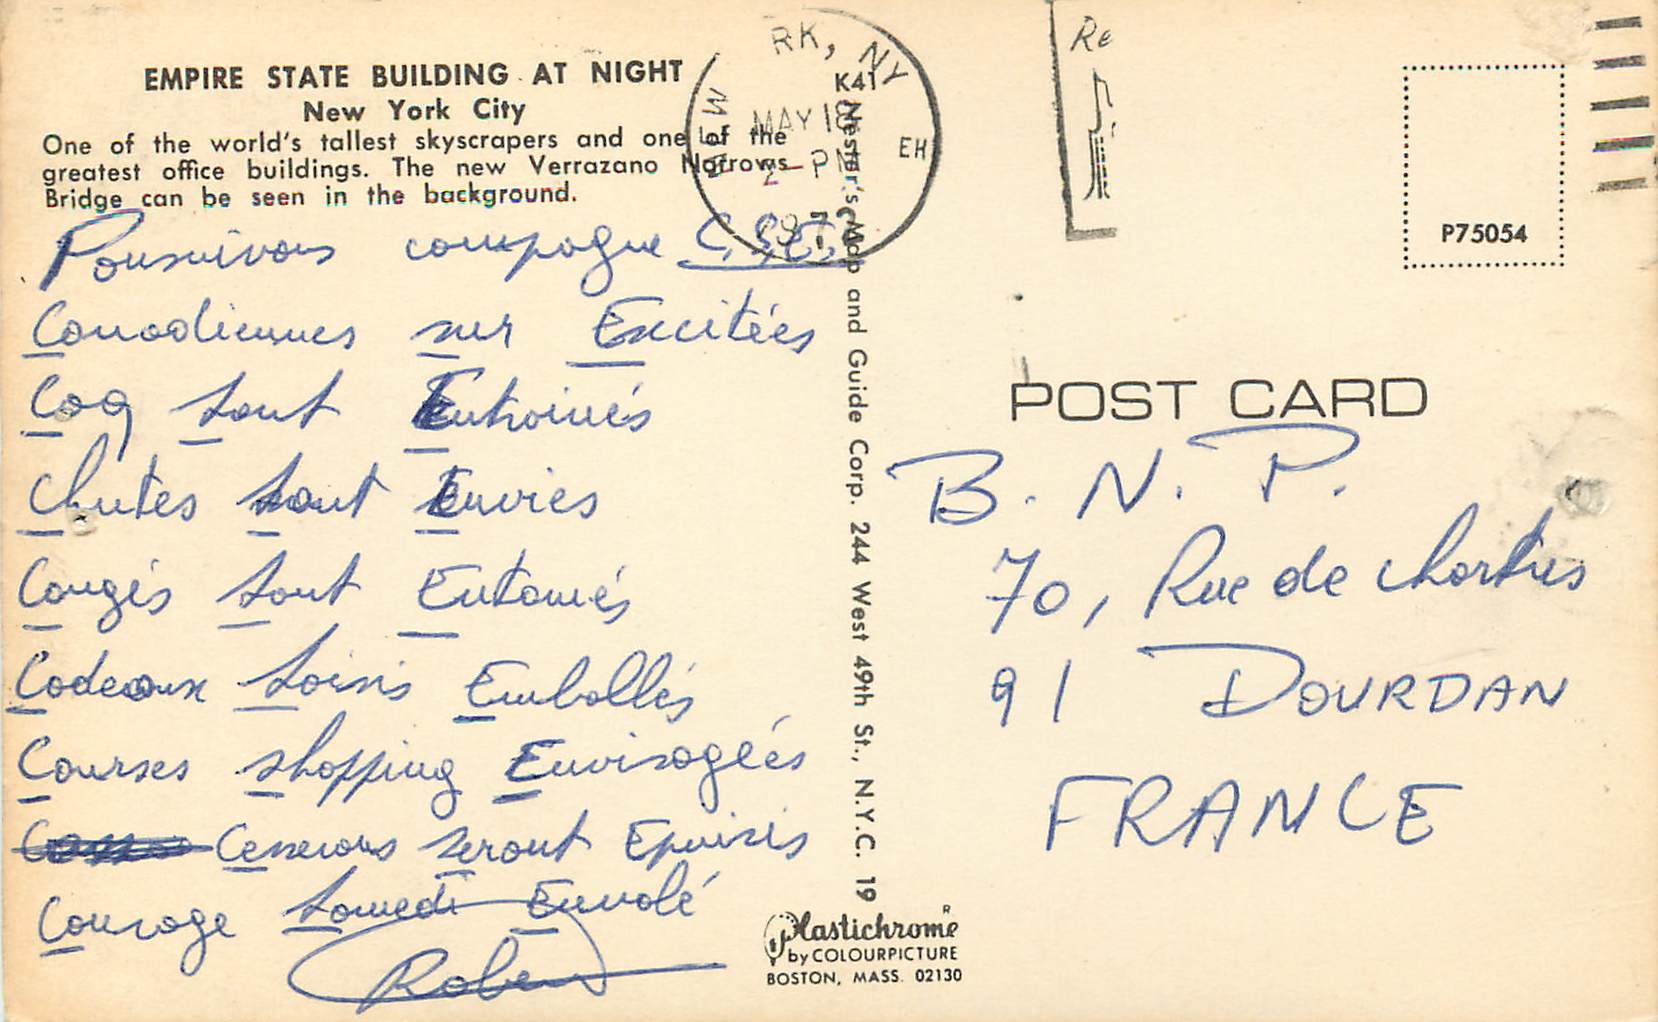 EMPIRE STATE BUILDING AT NIGHT
New York City
One of the world's tallest skyscrapers and one of the
greatest office buildings. The new Verrazano Narrows
Bridge can be seen in the background.
Poursuivons campagne C.S.E.
Canadiennes sur Excitées
Coq sont Entrainés
Chutes sont Envies
Congés sont Entamés
Cadeaux Soirs Emballés
Courses shopping Envisagées
Censeurs seront Epuisés
Courage Samedi Envolé
Robert
NEW YORK, NY
MAY 18
2 - PM
197
EH
K41
Nester's Map and Guide Corp. 244 West 49th St., N.Y.C. 19
Plastichrome R
by COLOURPICTURE
BOSTON, MASS. 02130
Re
P75054
POST CARD
B. N. P.
70, Rue de Chartres
91 DOURDAN
FRANCE